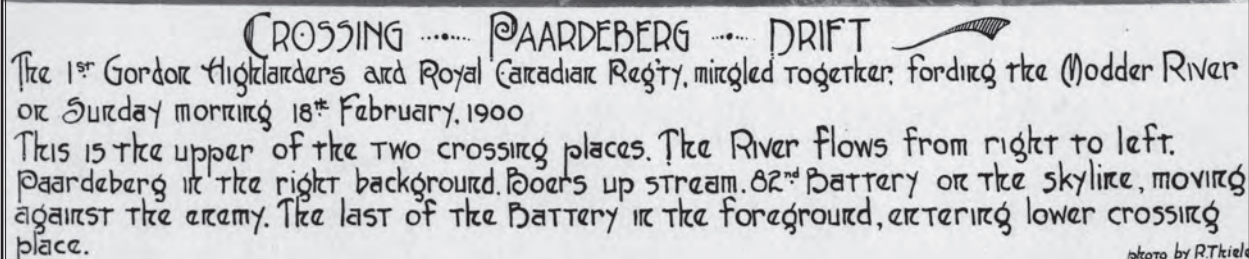 CROSSING PAARDEBERG DRIFT
The 1st Gordon Highlanders and Royal Canadian Reg'ty, mingled together, fording the Modder River
on Sunday morning 18th February, 1900
This is the upper of the two crossing places. The River flows from right to left.
Paardeberg in the right background. Boers up stream. 82nd Battery on the skyline, moving
against the enemy. The last of the Battery in the foreground, entering lower crossing
place.
photo by R. Thiele